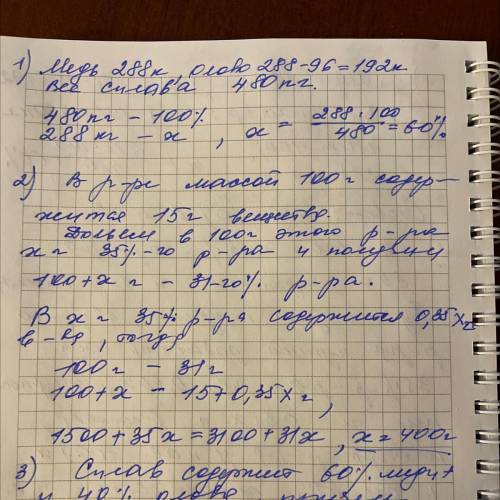 1) Медь 288к, олово 288-96=192к
Вес сплава 480 кг.
480 кг - 100%
288 кг - x , x = 288·100/480 = 60%.
2) В р-ре массой 100 г содер-
жится 15 г вещество.
Дольем в 100 г этого р-ра
x г 35%-го р-ра и получим
100+x г - 31-го% р-ра.
В x г 35% р-ра содержится 0,35x г
в-ва, тогда
100 г - 31 г
100+x - 15+0,35x г,
1500+35x=3100+31x, x=400г
3) Сплав содержит 60% меди
и 40% олова